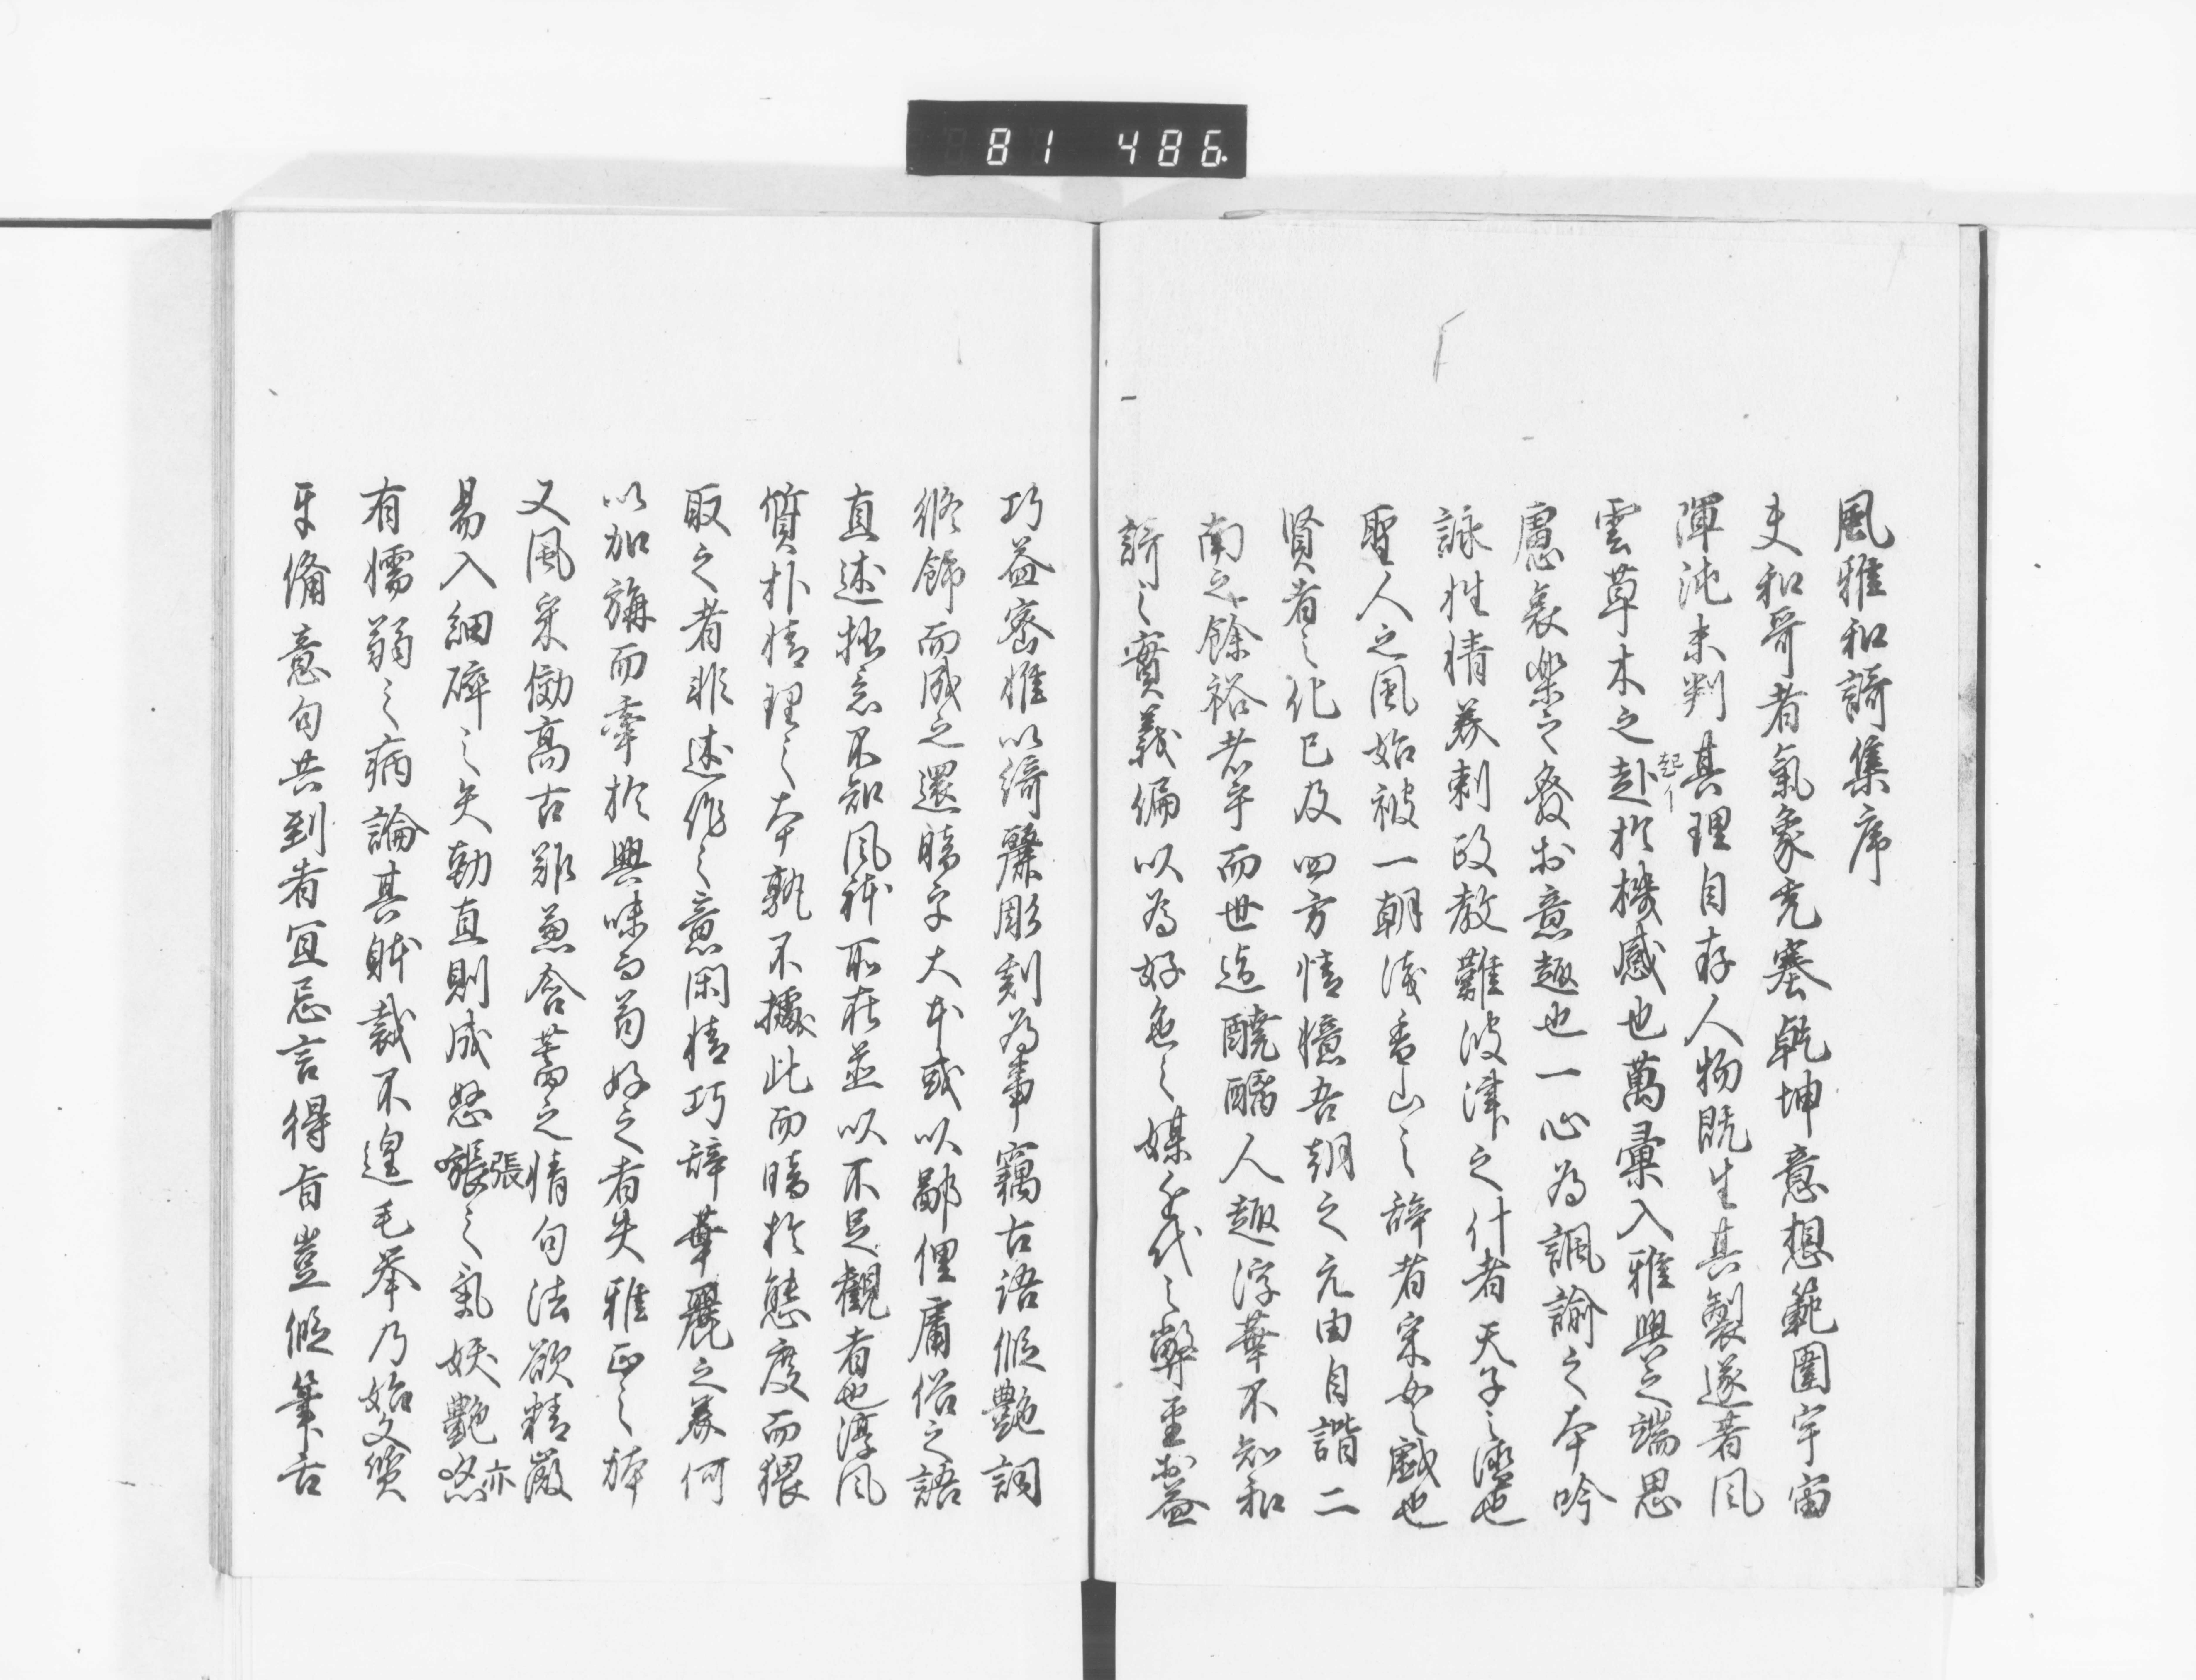 81 486.
風雅和謌集序
夫和哥者氣象充塞乾坤意想範囲宇宙
渾沌未判其理自存人物既生其製遂著風
雲草木之赴於機感也萬彙入雅興之端思
起イ
慮哀樂之發於意趣也一心為諷諭之本吟
詠性情美刺政教難波津之什者天子之徳也
聖人之風始被一朝浅香山之辞者采女之戯也
賢者之化已及四方情憶吾朝之元由自諧二
南之餘裕者乎而世迨澆醨人趣浮華不知和
謌之實義偏以為好色之媒近代之弊至於益
巧益密惟以綺麗彫刻為事竊古語仮艶詞
修飾而成之還暗乎大本或以鄙俚庸俗之語
直述拙意不知風躰所在並以不足観者也淳風
質朴情理之本孰不據此而暗於態度而猥
取之者非述作之意閑情巧辞華麗之美何
以加旃而牽於興味而苟好之者失雅正之躰
又風采倣高古雖兼含蓄之情句法欲精厳
易入細碎之失勁直則成怒張之氣妖艶
張
亦
有懦弱之病論其躰裁不遑毛挙乃始文質
互備意句共到者宜忘言得旨豈假筆舌